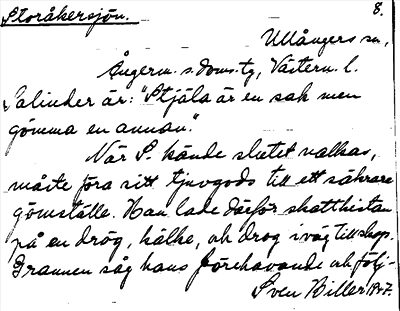 Storåkersjön. 8.
Ullångers sn,
Ångerm. s. doms. tg, Västern. l.
Salinder är: "Stjäla är en sak men
gömma en annan."
När S. kände slutet nalkas,
måste föra sitt tjuvgods till ett säkrare
gömställe. Han lade därför skattkistan
på en drög, kälke, och drog iväg till skogs.
Grannen såg hans förehavande och följ-
Sven Biller 1947.